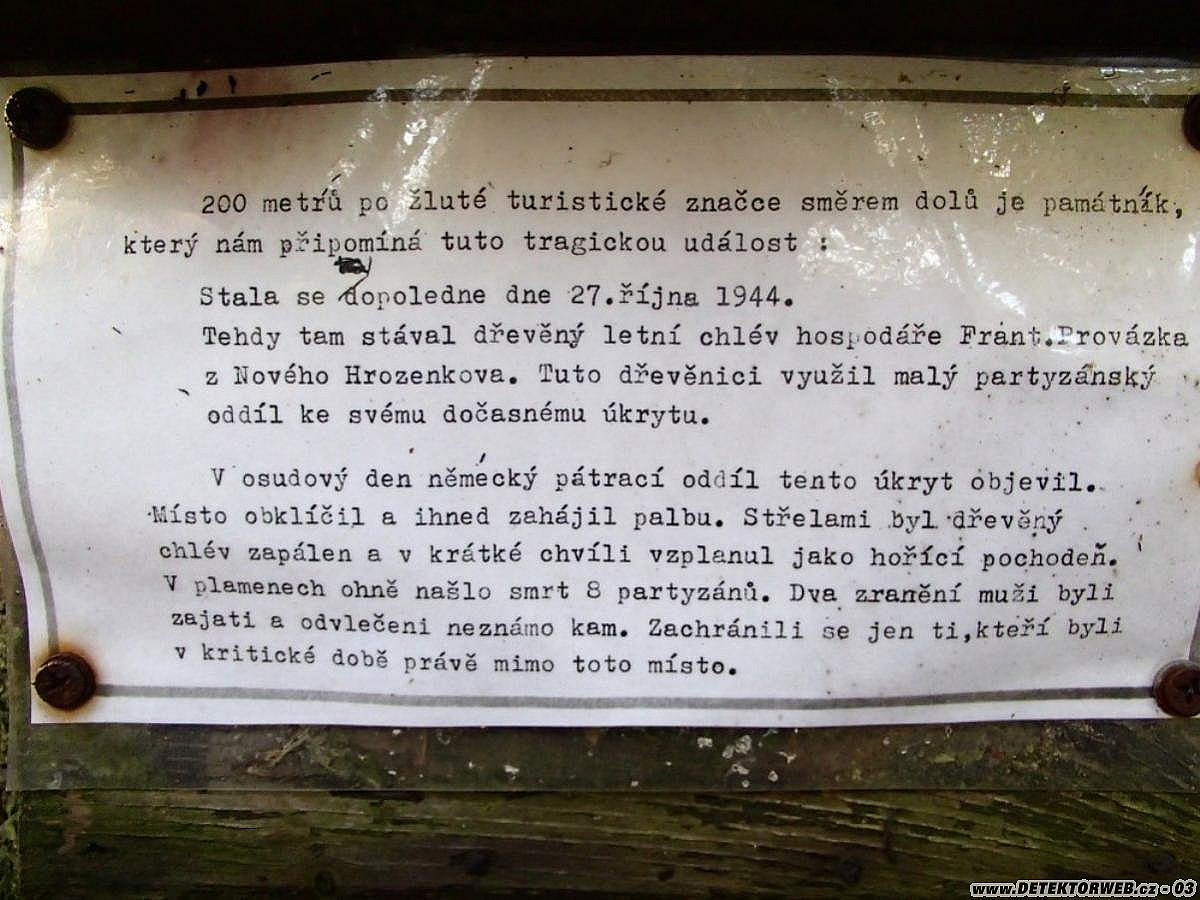 200 metrů po žluté turistické značce směrem dolů je památník,
který nám připomíná tuto tragickou událost :
Stala se dopoledne dne 27.října 1944.
Tehdy tam stával dřevěný letní chlév hospodáře Frant.Provázka
z Nového Hrozenkova. Tuto dřevěnici využil malý partyzánský
oddíl ke svému dočasnému úkrytu.
V osudový den německý pátrací oddíl tento úkryt objevil.
Místo obklíčil a ihned zahájil palbu. Střelami byl dřevěný
chlév zapálen a v krátké chvíli vzplanul jako hořící pochodeň.
V plamenech ohně našlo smrt 8 partyzánů. Dva zranění muži byli
zajati a odvlečeni neznámo kam. Zachránili se jen ti,kteří byli
v kritické době právě mimo toto místo.
www.DETEKTORWEB.cz - 03